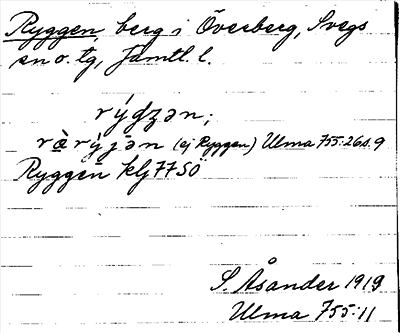 Ryggen, berg i Överberg, Svegs
sn o. tg, Jämtl. l.
rýdzən;
ræ̀rýjən (ej Ryggen) Ulma 755:26 s. 9
Ryggen klj 77 SÖ
S. Åsander 1919
Ulma 755:11